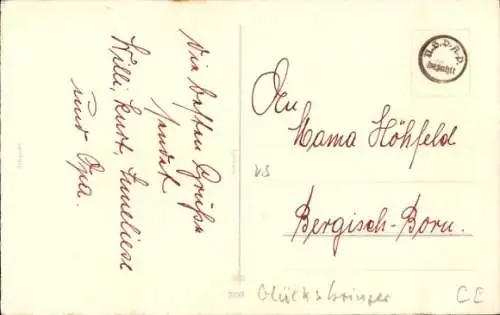 Die besten Grüße
sendet
Willi, Kurt, Anneliese
und Opa.
N.S.D.A.P.
bezahlt
An
Mama Höhfeld
Bergisch-Born.
Glücksbringer
CE